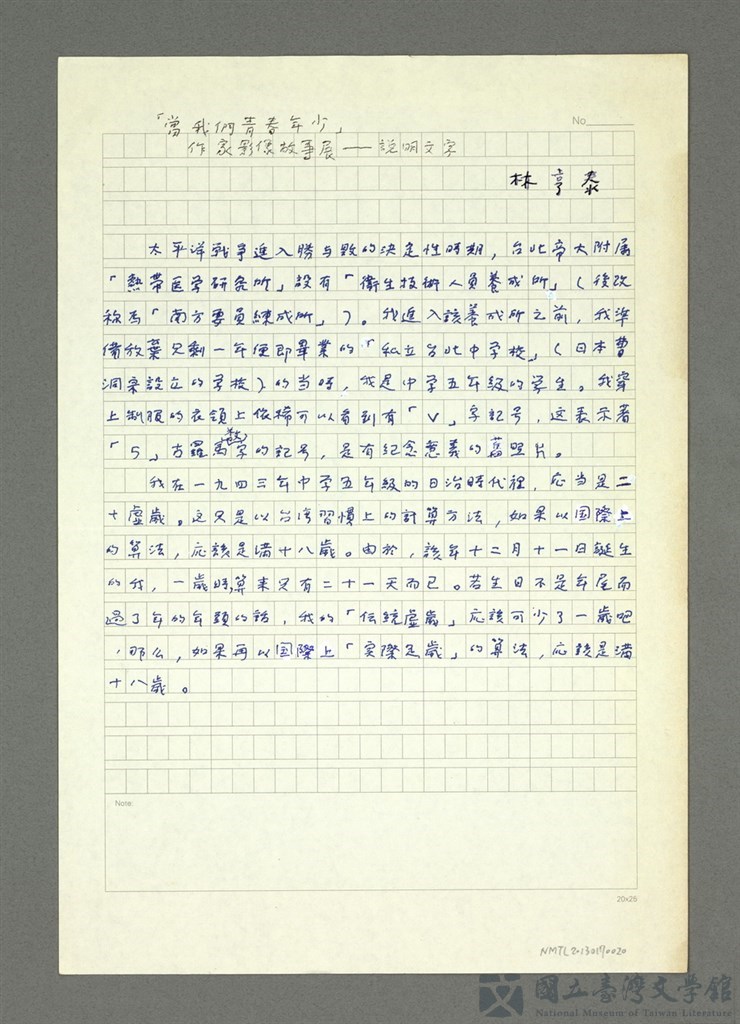 「當我們青春年少」
No
作家影像故事展——說明文字
林亨泰
太平洋戦争進入勝与敗的決定性時期，台北帝大附属
「熱帯医学研究所」設有「衛生技術人員養成所」（後改
称為「南方要員練成所」）。我進入該養成所之前，我準
備放棄只剩一年便即畢業的「私立台北中学校」（日本曹
洞宗設立的学校）的当時，我是中学五年級的学生。我穿
上制服的衣領上依稀可以看到有「V」字記号，这表示著
「5」古羅馬数字的記号，是有紀念意義的舊照片。
我在一九四三年中学五年級的日治時代裡，应当是二
十虛歲。这只是以台湾習慣上的計算方法，如果以国際上
的算法，应該是満十八歲。由於，該年十二月十一日誕生
的我，一歲時算来只有二十一天而已。若生日不是年尾而
過了年的年頭的話，我的「伝統虛歲」应該可少了一歲吧
，那么，如果再以国際上「实際足歲」的算法，应該是満
十八歲。
Note:
20x25
NMTL20130170020
國立臺灣文學館
National Museum of Taiwan Literature